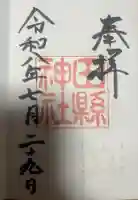 奉拝
田縣
神社
令和八年七月二十九日